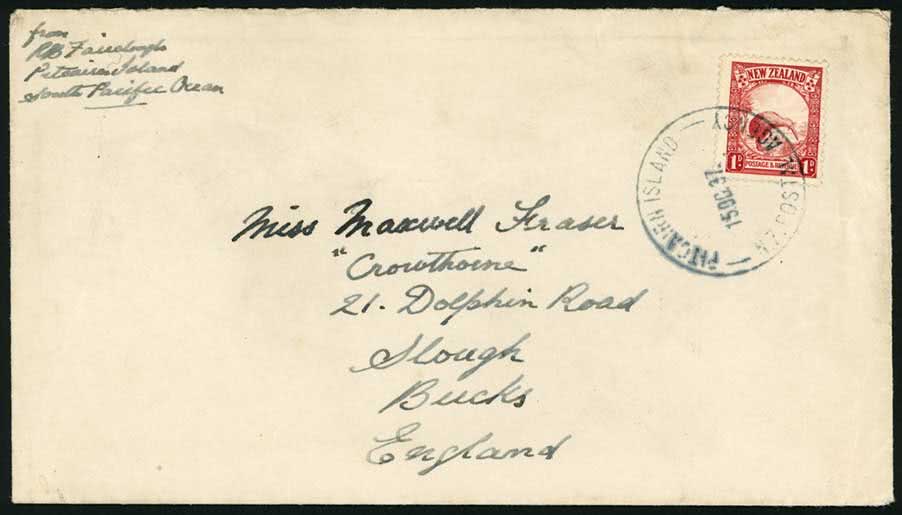 from
RB Fairclough
Pitcairn Island
South Pacific Ocean
NEW ZEALAND
1D POSTAGE & REVENUE 1D
PITCAIRN ISLAND — N.Z. POSTAL AGENCY —
15 DC 37
Miss Maxwell Fraser
"Crowthorne"
21. Dolphin Road
Slough
Bucks
England